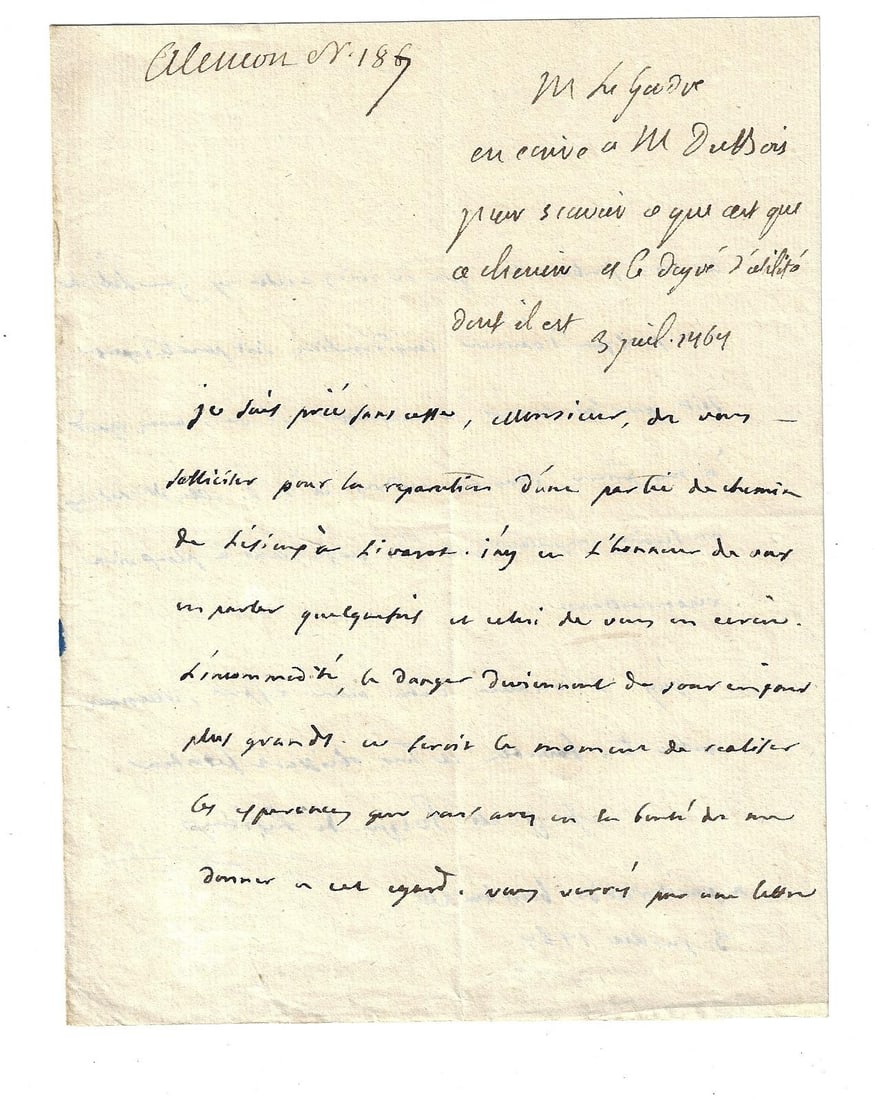 Alencon N. 186
M Le
en ecrive a M DuBois
pour scavoir ce que c'est que
ce chemin et le degré d'utilité
dont il est 3 juil. 1764
je suis prié sans cesse, Monsieur, de vous
solliciter pour la reparation d'une partie du chemin
de Lisieux à Livarot. j'ay eu l'honneur de vous
en parler quelquefois et celui de vous en ecrire.
L'incommodité, le danger deviennent de jour en jour
plus grands. ce seroit le moment de realiser
les esperances que vous avez eu la bonté de me
donner a cet egard. vous verrés par une lettre